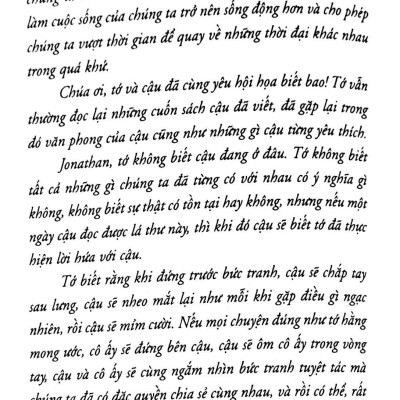 làm cuộc sống của chúng ta trở nên sống động hơn và cho phép
chúng ta vượt thời gian để quay về những thời đại khác nhau
trong quá khứ.
Chúa ơi, tớ và cậu đã cùng yêu hội họa biết bao! Tớ vẫn
thường đọc lại những cuốn sách cậu đã viết, đã gặp lại trong
đó văn phong của cậu cũng như những gì cậu từng yêu thích.
Jonathan, tớ không biết cậu đang ở đâu. Tớ không biết
tất cả những gì chúng ta đã từng có với nhau có ý nghĩa gì
không, không biết sự thật có tồn tại hay không, nhưng nếu một
ngày cậu đọc được lá thư này, thì khi đó cậu sẽ biết tớ đã thực
hiện lời hứa với cậu.
Tớ biết rằng khi đứng trước bức tranh, cậu sẽ chắp tay
sau lưng, cậu sẽ nheo mắt lại như mỗi khi gặp điều gì ngạc
nhiên, rồi cậu sẽ mỉm cười. Nếu mọi chuyện đúng như tớ hằng
mong ước, cô ấy sẽ đứng bên cậu, cậu sẽ ôm cô ấy trong vòng
tay, cậu và cô ấy sẽ cùng ngắm nhìn bức tranh tuyệt tác mà
chúng ta đã có đặc quyền chia sẻ cùng nhau, và rồi có thể, rất